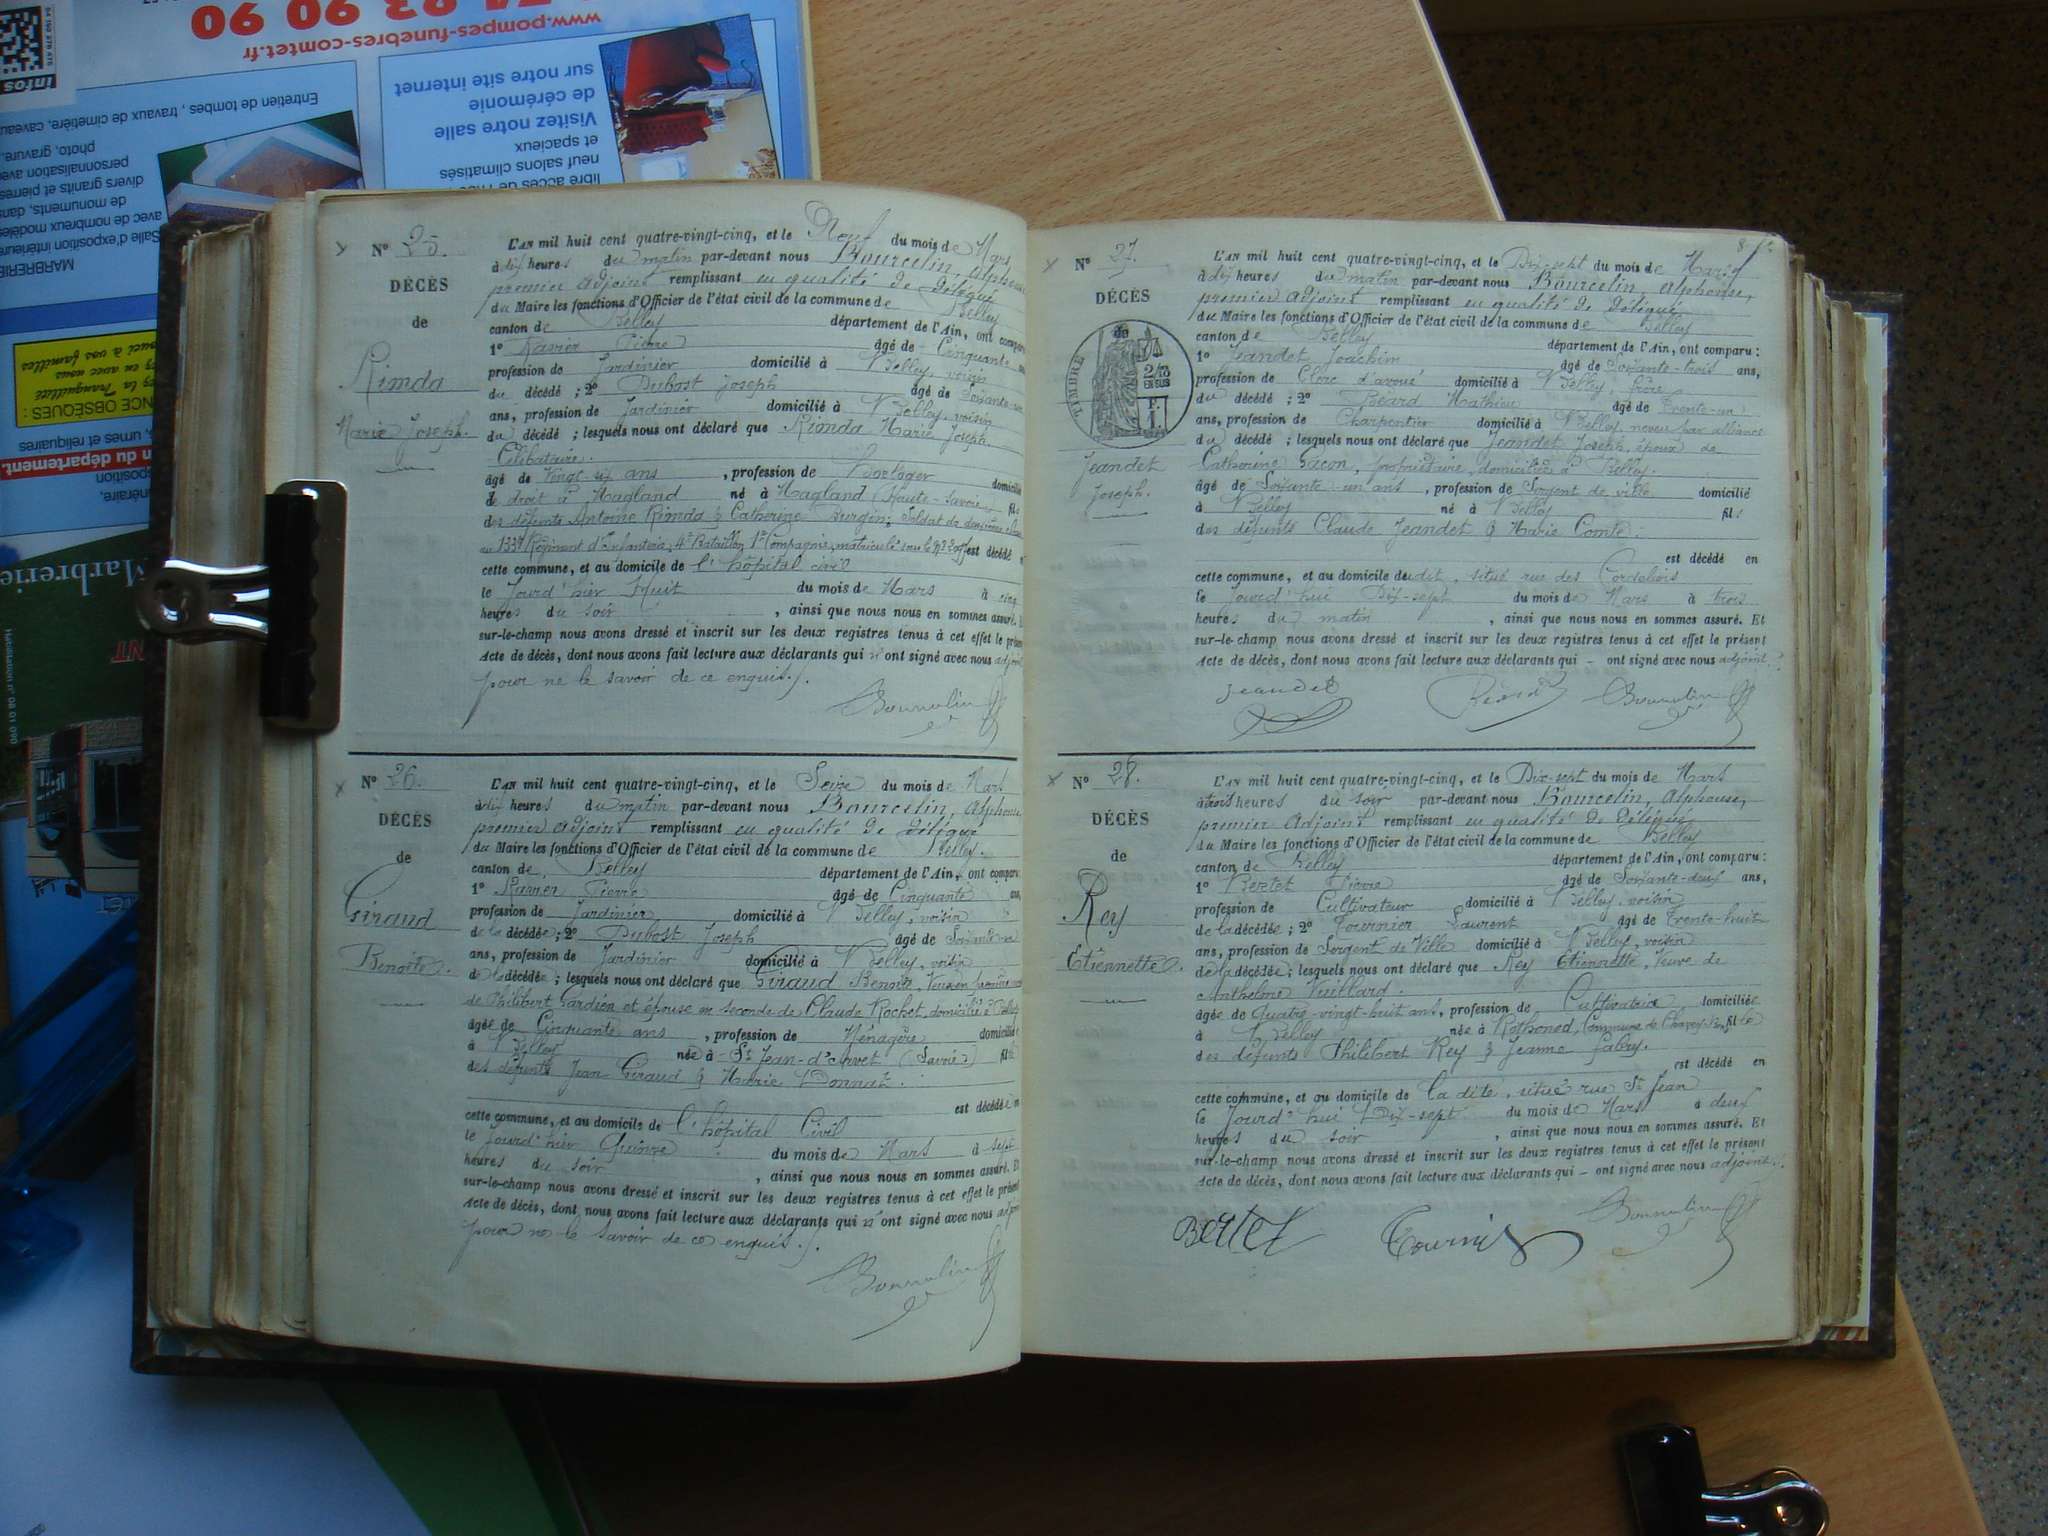 74 93 90 90
www.pompes-funebres-comtet.fr
infos
Entretien de tombes, travaux de cimetière,
photo, gravure,
personnalisation
divers granits et pierres
de monuments, dans
avec de nombreux modèles
Salle d'exposition intérieure
MARBRERIE
Visitez notre salle
de cérémonie
sur notre site internet
libre accès
neuf salons climatisés
et spacieux
OBSÈQUES :
la Tranquillité
en avec nous
à vos familles
urnes et reliquaires
du département.
Marbrerie
N° 25.
DÉCÈS
de
Rimda
Marie Joseph.
L'AN mil huit cent quatre-vingt-cinq, et le Neuf du mois de Mars
à dix heures du matin par-devant nous Bourcelin, Alphonse
premier adjoint remplissant en qualité de délégué
du Maire les fonctions d'Officier de l'état civil de la commune de Belley
canton de Belley département de l'Ain, ont comparu
1° Ravier Pierre âgé de Cinquante
profession de Jardinier domicilié à Belley, voisin
du décédé ; 2° Dubost Joseph âgé de
ans, profession de Jardinier domicilié à Belley, voisin
du décédé ; lesquels nous ont déclaré que Rimda Marie Joseph
Célibataire.
âgé de Vingt six ans, profession de Horloger domicilié
de droit à Magland né à Magland Haute-Savoie fils
des défunts Antoine Rimda & Catherine Soldat de deuxième
au 133e Régiment d'Infanterie, 4e Bataillon, 1e Compagnie, matriculé sous le N° est décédé
cette commune, et au domicile de l'hôpital civil
le Jourd'hier Huit du mois de Mars à cinq
heures du soir, ainsi que nous nous en sommes assuré. Et
sur-le-champ nous avons dressé et inscrit sur les deux registres tenus à cet effet le présent
Acte de décès, dont nous avons fait lecture aux déclarants qui n'ont signé avec nous adjoint
pour ne le savoir de ce enquis./.
N° 26.
DÉCÈS
de
Giraud
Benoîte.
L'AN mil huit cent quatre-vingt-cinq, et le Seize du mois de Mars
à dix heures du matin par-devant nous Bourcelin, Alphonse
premier adjoint remplissant en qualité de délégué
du Maire les fonctions d'Officier de l'état civil de la commune de Belley.
canton de Belley département de l'Ain, ont comparu
1° Ravier Pierre âgé de Cinquante ans,
profession de Jardinier domicilié à Belley, voisin
de la décédée ; 2° Dubost Joseph âgé de
ans, profession de Jardinier domicilié à Belley, voisin
de la décédée ; lesquels nous ont déclaré que Giraud Benoîte,
de Philibert Gardien et épouse en seconde de Claude Rochet, domiciliée à Belley
âgée de Cinquante ans, profession de Ménagère domiciliée
à Belley née à St Jean-d'Arvet (Savoie) fille
des défunts Jean Giraud & Marie Donnat.
est décédée en
cette commune, et au domicile de l'hôpital Civil
le Jourd'hier Quinze du mois de Mars à sept
heures du soir, ainsi que nous nous en sommes assuré. Et
sur-le-champ nous avons dressé et inscrit sur les deux registres tenus à cet effet le présent
Acte de décès, dont nous avons fait lecture aux déclarants qui n'ont signé avec nous adjoint
pour ne le savoir de ce enquis./.
N° 27.
DÉCÈS
de
TIMBRE
2/10
EN SUS
Jeandet
Joseph.
L'AN mil huit cent quatre-vingt-cinq, et le Dix-sept du mois de Mars
à dix heures du matin par-devant nous Bourcelin, Alphonse,
premier adjoint remplissant en qualité de délégué
du Maire les fonctions d'Officier de l'état civil de la commune de Belley
canton de Belley département de l'Ain, ont comparu :
1° Jeandet Joachim âgé de Soixante-trois ans,
profession de Clerc d'avoué domicilié à Belley, frère
du décédé ; 2° Béard Mathieu âgé de Trente-un
ans, profession de Charpentier domicilié à Belley, neveu par alliance
du décédé ; lesquels nous ont déclaré que Jeandet Joseph, époux de
Catherine Gacon, propriétaire, domiciliée à Belley.
âgé de Soixante-un ans, profession de Sergent de ville domicilié
à Belley né à Belley fils
des défunts Claude Jeandet & Marie Comte.
est décédé en
cette commune, et au domicile dudit, situé rue des Cordeliers
le Jourd'hui Dix-sept du mois de Mars à trois
heures du matin, ainsi que nous nous en sommes assuré. Et
sur-le-champ nous avons dressé et inscrit sur les deux registres tenus à cet effet le présent
Acte de décès, dont nous avons fait lecture aux déclarants qui – ont signé avec nous adjoint./.
Jeandet
N° 28.
DÉCÈS
de
Rey
Etiennette.
L'AN mil huit cent quatre-vingt-cinq, et le Dix-sept du mois de Mars
à trois heures du soir par-devant nous Bourcelin, Alphonse,
premier adjoint remplissant en qualité de délégué
du Maire les fonctions d'Officier de l'état civil de la commune de Belley
canton de Belley département de l'Ain, ont comparu :
1° Bertet Pierre âgé de Soixante-deux ans,
profession de Cultivateur domicilié à Belley, voisin
de la décédée ; 2° Tournier Laurent âgé de Trente-huit
ans, profession de Sergent de Ville domicilié à Belley, voisin
de la décédée ; lesquels nous ont déclaré que Rey Etiennette, Veuve de
Anthelme Vuillard.
âgée de Quatre-vingt-huit ans, profession de Cultivatrice domiciliée
à Belley née à Rothonod, Commune de fille
des défunts Philibert Rey & Jeanne Fabry.
est décédé en
cette commune, et au domicile de la dite, situé rue St Jean
le Jourd'hui Dix-sept du mois de Mars à deux
heures du soir, ainsi que nous nous en sommes assuré. Et
sur-le-champ nous avons dressé et inscrit sur les deux registres tenus à cet effet le présent
Acte de décès, dont nous avons fait lecture aux déclarants qui – ont signé avec nous adjoint./.
Bertet